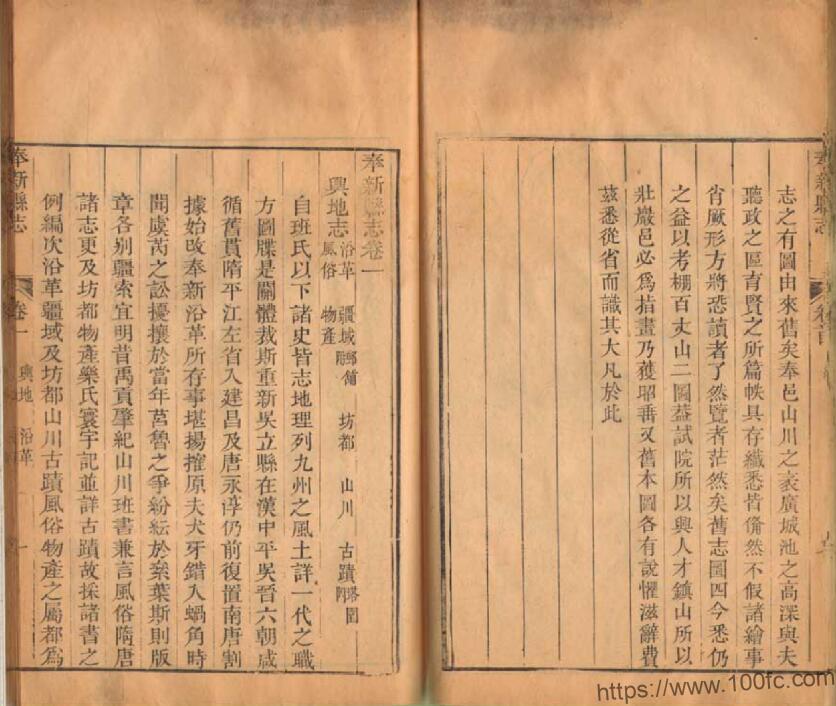 志之有圖由來舊矣奉邑山川之袤廣城池之高深與夫
聽政之區育賢之所篇帙具存纖悉皆備然不假諸繪事
肖厥形方將恐讀者了然覽者茫然矣舊志圖四今悉仍
之益以考棚百丈山二圖蓋試院所以興人才鎮山所以
壯巖邑必爲指畫乃獲昭垂又舊本圖各有說懼滋辭費
茲悉從省而識其大凡於此
奉新縣志
卷首
奉新縣志卷一
輿地志 沿革 疆域 坊都 山川 古蹟
風俗 物產
自班氏以下諸史皆志地理列九州之風土詳一代之職
方圖牒是關體裁斯重新吳立縣在漢中平吳晉六朝咸
循舊貫隋平江左省入建昌及唐永淳仍前復置南唐割
據始改奉新沿革所存事堪揚搉原夫犬牙錯入蝸角時
聞虞芮之訟擾攘於當年莒魯之爭紛紜於奕葉斯則版
章各別疆索宜明昔禹貢肇紀山川班書兼言風俗隋唐
諸志更及坊都物產樂氏寰宇記並詳古蹟故採諸書之
例編次沿革疆域及坊都山川古蹟風俗物產之屬都爲
奉新縣志
卷一
輿地 沿革
一
https://www.100fc.com